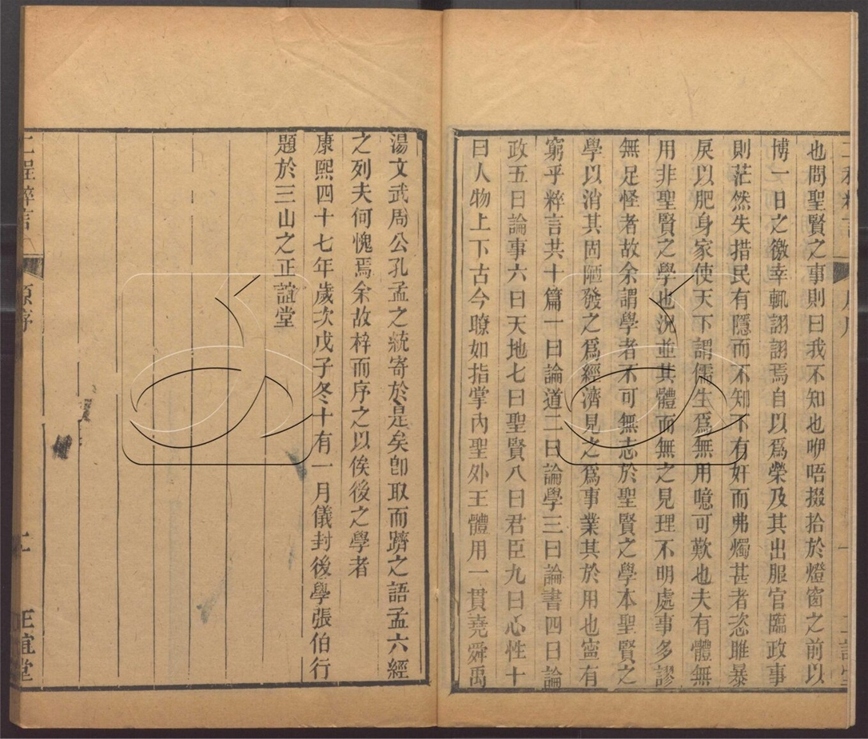 也問聖賢之事則曰我不知也咿唔掇拾於燈窗之前以
博一日之徼幸輒詡詡焉自以爲榮及其出服官臨政事
則茫然失措民有隱而不知下有奸而弗燭甚者恣睢暴
戾以肥身家使天下謂儒生爲無用噫可歎也夫有體無
用非聖賢之學也況並其體而無之見理不明處事多謬
無足怪者故余謂學者不可無志於聖賢之學本聖賢之
學以消其固陋發之爲經濟見之爲事業其於用也寧有
窮乎粹言共十篇一曰論道二曰論學三曰論書四曰論
政五曰論事六曰天地七曰聖賢八曰君臣九曰心性十
曰人物上下古今瞭如指掌內聖外王體用一貫堯舜禹
湯文武周公孔孟之統寄於是矣卽取而躋之語孟六經
之列夫何愧焉余故梓而序之以俟後之學者
康熙四十七年歲次戊子冬十有一月儀封後學張伯行
題於三山之正誼堂
二程粹言
原序
二
正誼堂